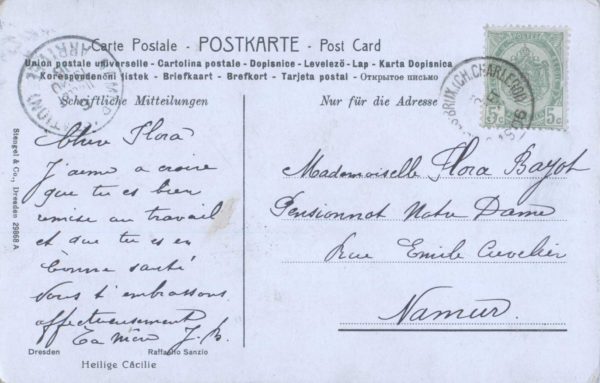 Carte Postale - POSTKARTE - Post Card
Union postale universelle - Cartolina postale - Dopisnice - Levelező - Lap - Karta Dopisnica
Korespondenční lístek - Briefkaart - Brefkort - Tarjeta postal - Открытое письмо
Schriftliche Mitteilungen
Nur für die Adresse
5c 5c
Stengel & Co., Dresden 29868 A
Chère Flora
J'aime a croire
que tu es bien
remise au travail
et que tu es en
bonne santé
Nous t'embrassons
affectueusement
Ta mère J. B.
Mademoiselle Flora Bayot
Pensionnat Notre Dame
Rue Emile Cuvelier
Namur.
Dresden Raffaello Sanzio
Heilige Cäcilie